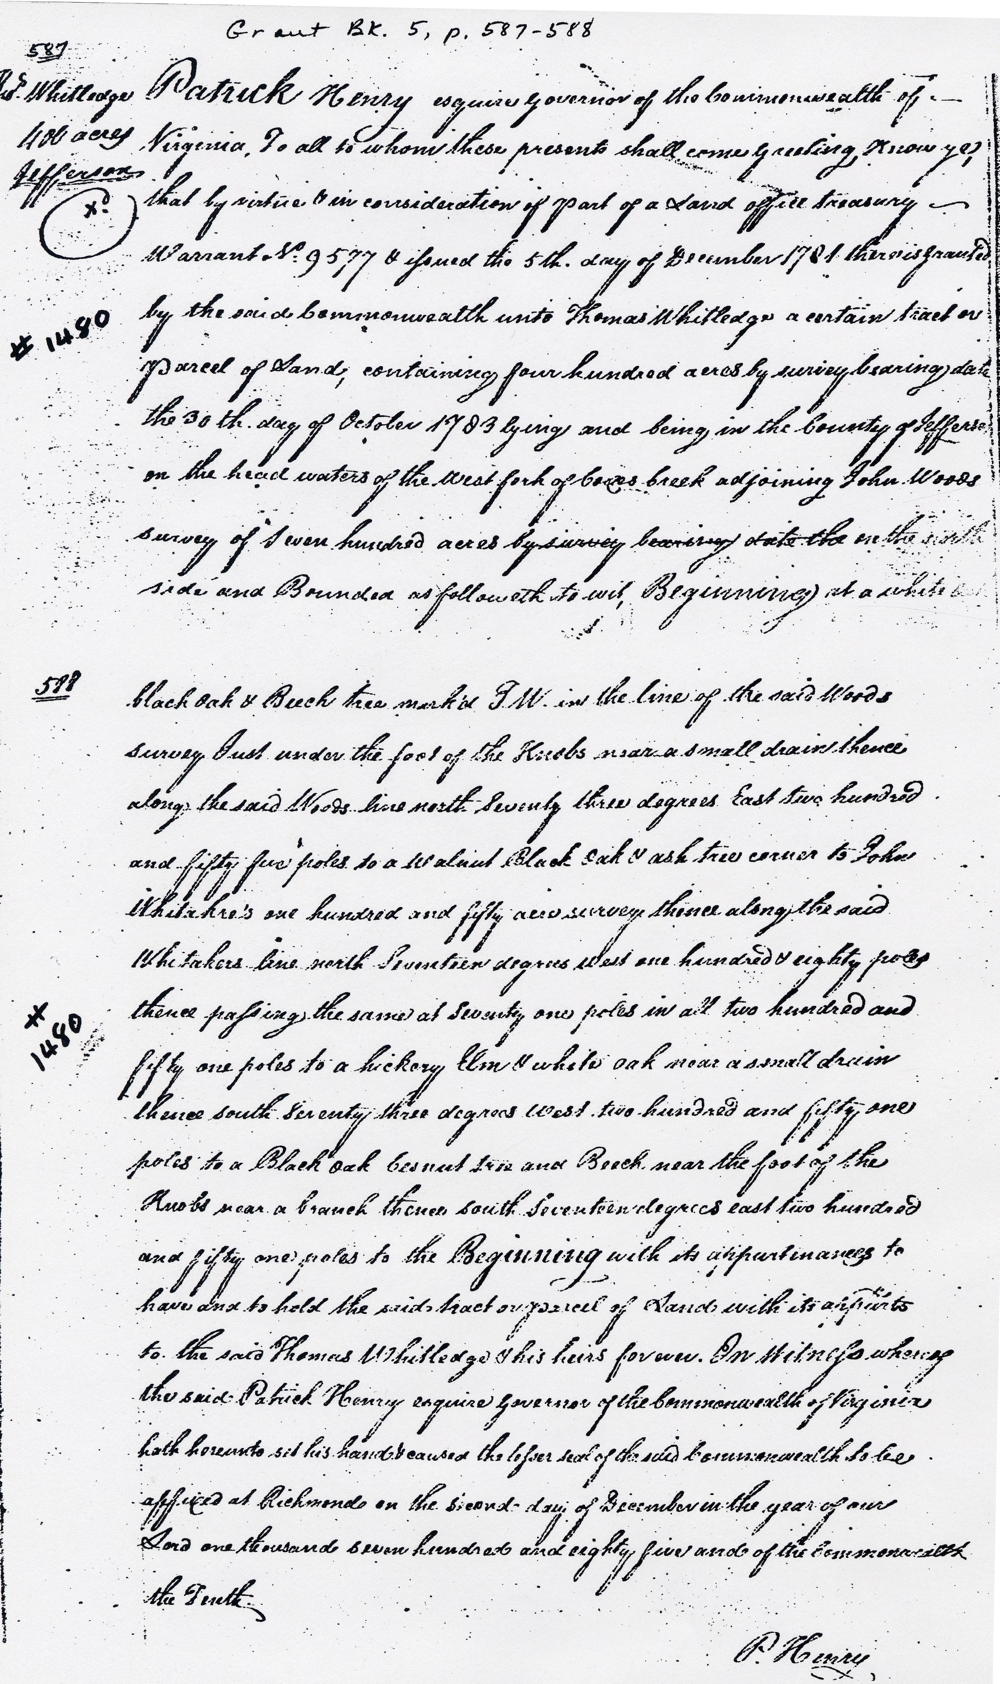 Grant Bk. 5, p. 587-588
587
Thos. Whitledge
400 acres
Jefferson
Xd
Patrick Henry esquire Governor of the Commonwealth of
Virginia, To all to whom these presents shall come Greeting, Know ye,
that by virtue & in consideration of part of a Land office treasury
Warrant No. 9577 & issued the 5th. day of December 1781 there is granted
# 1480
by the said Commonwealth unto Thomas Whitledge a certain tract or
parcel of Land, containing four hundred acres by survey bearing date
the 30th. day of October 1783 lying and being in the County of Jefferson
on the head waters of the West fork of Coxes Creek adjoining John Woods
survey of Seven hundred acres by survey bearing date the on the north
side and Bounded as followeth to wit, Beginning at a white
588
black oak & Beech tree mark'd T.W. in the line of the said Woods
survey Just under the foot of the Knobs near a small drain thence
along the said Woods line north Seventy three degrees East two hundred
and fifty five poles to a Walnut Black oak & ash tree corner to John
one hundred and fifty acre survey thence along the said
Whitakers line north Seventeen degrees West one hundred & eighty poles
thence passing the same at Seventy one poles in all two hundred and
# 1480
fifty one poles to a hickory Elm & white oak near a small drain
thence south Seventy three degrees West two hundred and fifty one
poles to a Black oak Cesnut tree and Beech near the foot of the
Knobs near a branch thence south Seventeen degrees east two hundred
and fifty one poles to the Beginning with its appurtinances to
have and to hold the said tract or parcel of Land with its appurts
to the said Thomas Whitledge & his heirs forever. In Witness whereof
the said Patrick Henry esquire Governor of the Commonwealth of Virginia
hath hereunto set his hand & caused the lesser seal of the said Commonwealth to be
affixed at Richmond on the second day of December in the year of our
Lord one thousand seven hundred and eighty five and of the Commonwealth
the Tenth
P. Henry